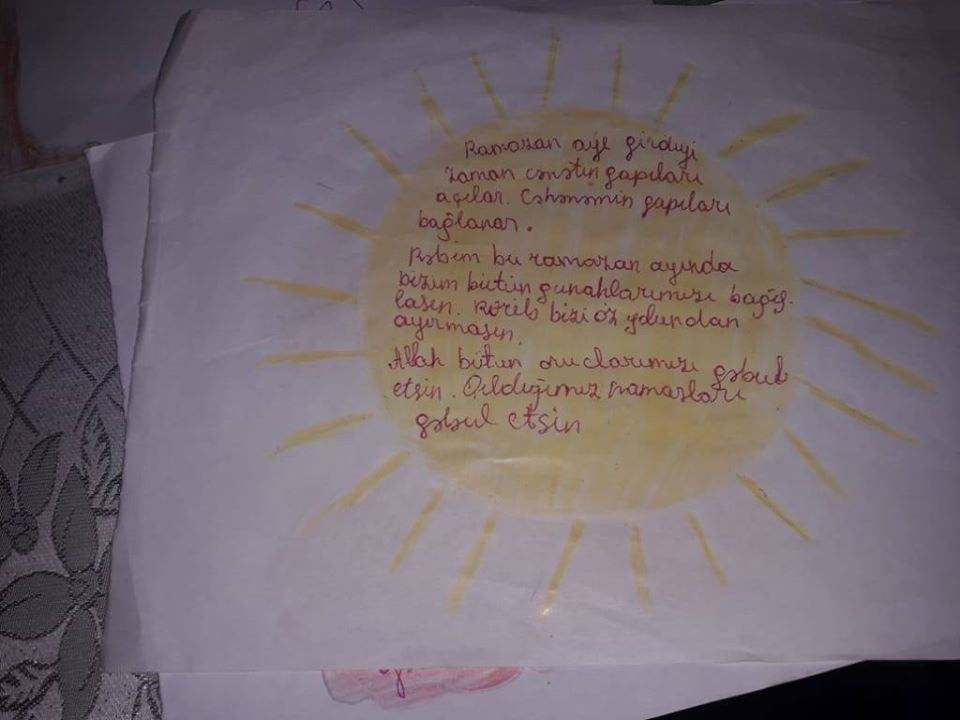 Ramazan aye girdiyi
zaman cənətin qapıları
açılar. Cəhənəmin qapıları
bağlanar.
Rəbim bu ramazan ayında
bizim bütün gunahlarımızı bağış-
lasın. bizi öz yolundan
ayırmasın.
Allah bütün oruclarımızı qəbul
etsin. Qıldığımız namazları
qəbul etsin